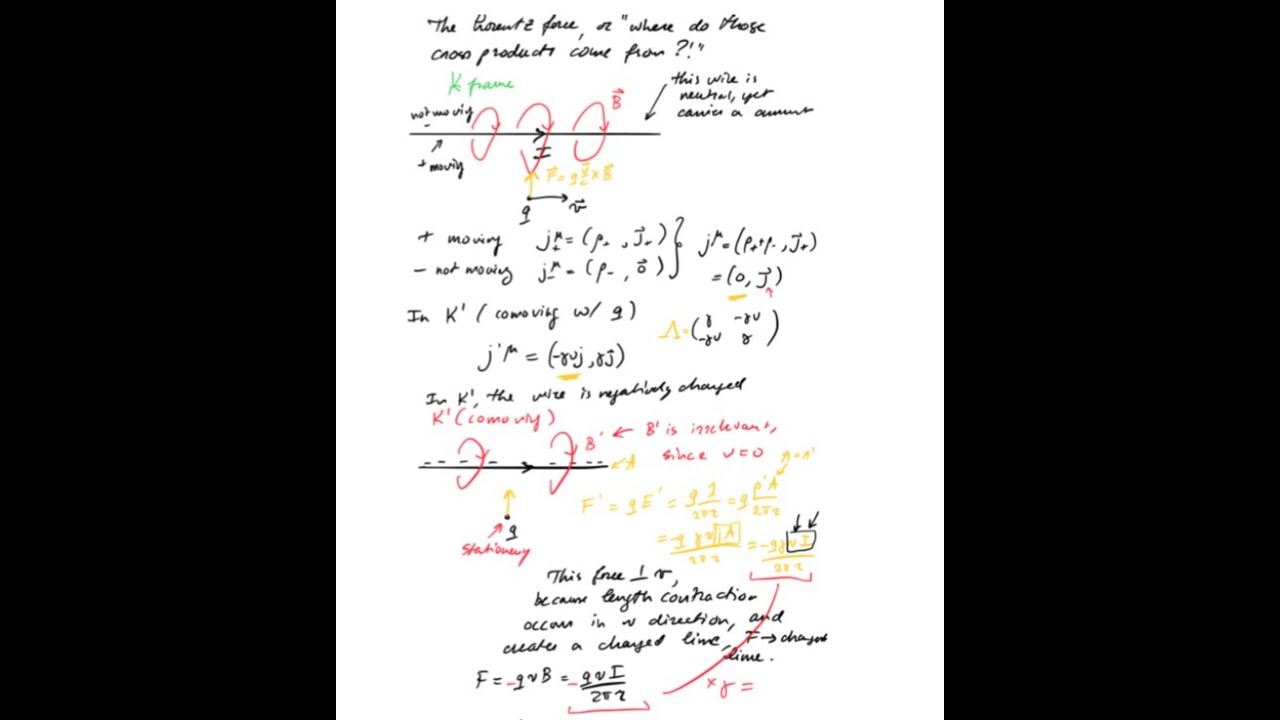 The Lorentz force, or "where do those
cross products come from?!"
K frame
this wire is
neutral, yet
carries a current
B⃗
not moving
−
I
+ moving
F⃗ = q v⃗/c × B⃗
q
v⃗
+ moving j₊^μ = (ρ₊, J⃗₊) } j^μ = (ρ₊+ρ₋, J⃗₊)
− not moving j₋^μ = (ρ₋, 0⃗) = (0, J⃗)
In K' (comoving w/ q) Λ = (γ −γv
−γv γ)
j'^μ = (−γvj, γj⃗)
In K', the wire is negatively charged
K' (comoving)
B' ← B' is irrelevant,
since v=0
A
A=A'
F' = qE' = q λ/2πr = q ρ'A'/2πr
q
stationary
= −q γ v jA/2πr = −qγvI/2πr
This force ⊥ v,
because length contraction
occurs in v direction, and
creates a charged line, F → charged
line.
F = −qvB = −qvI/2πr
×γ =